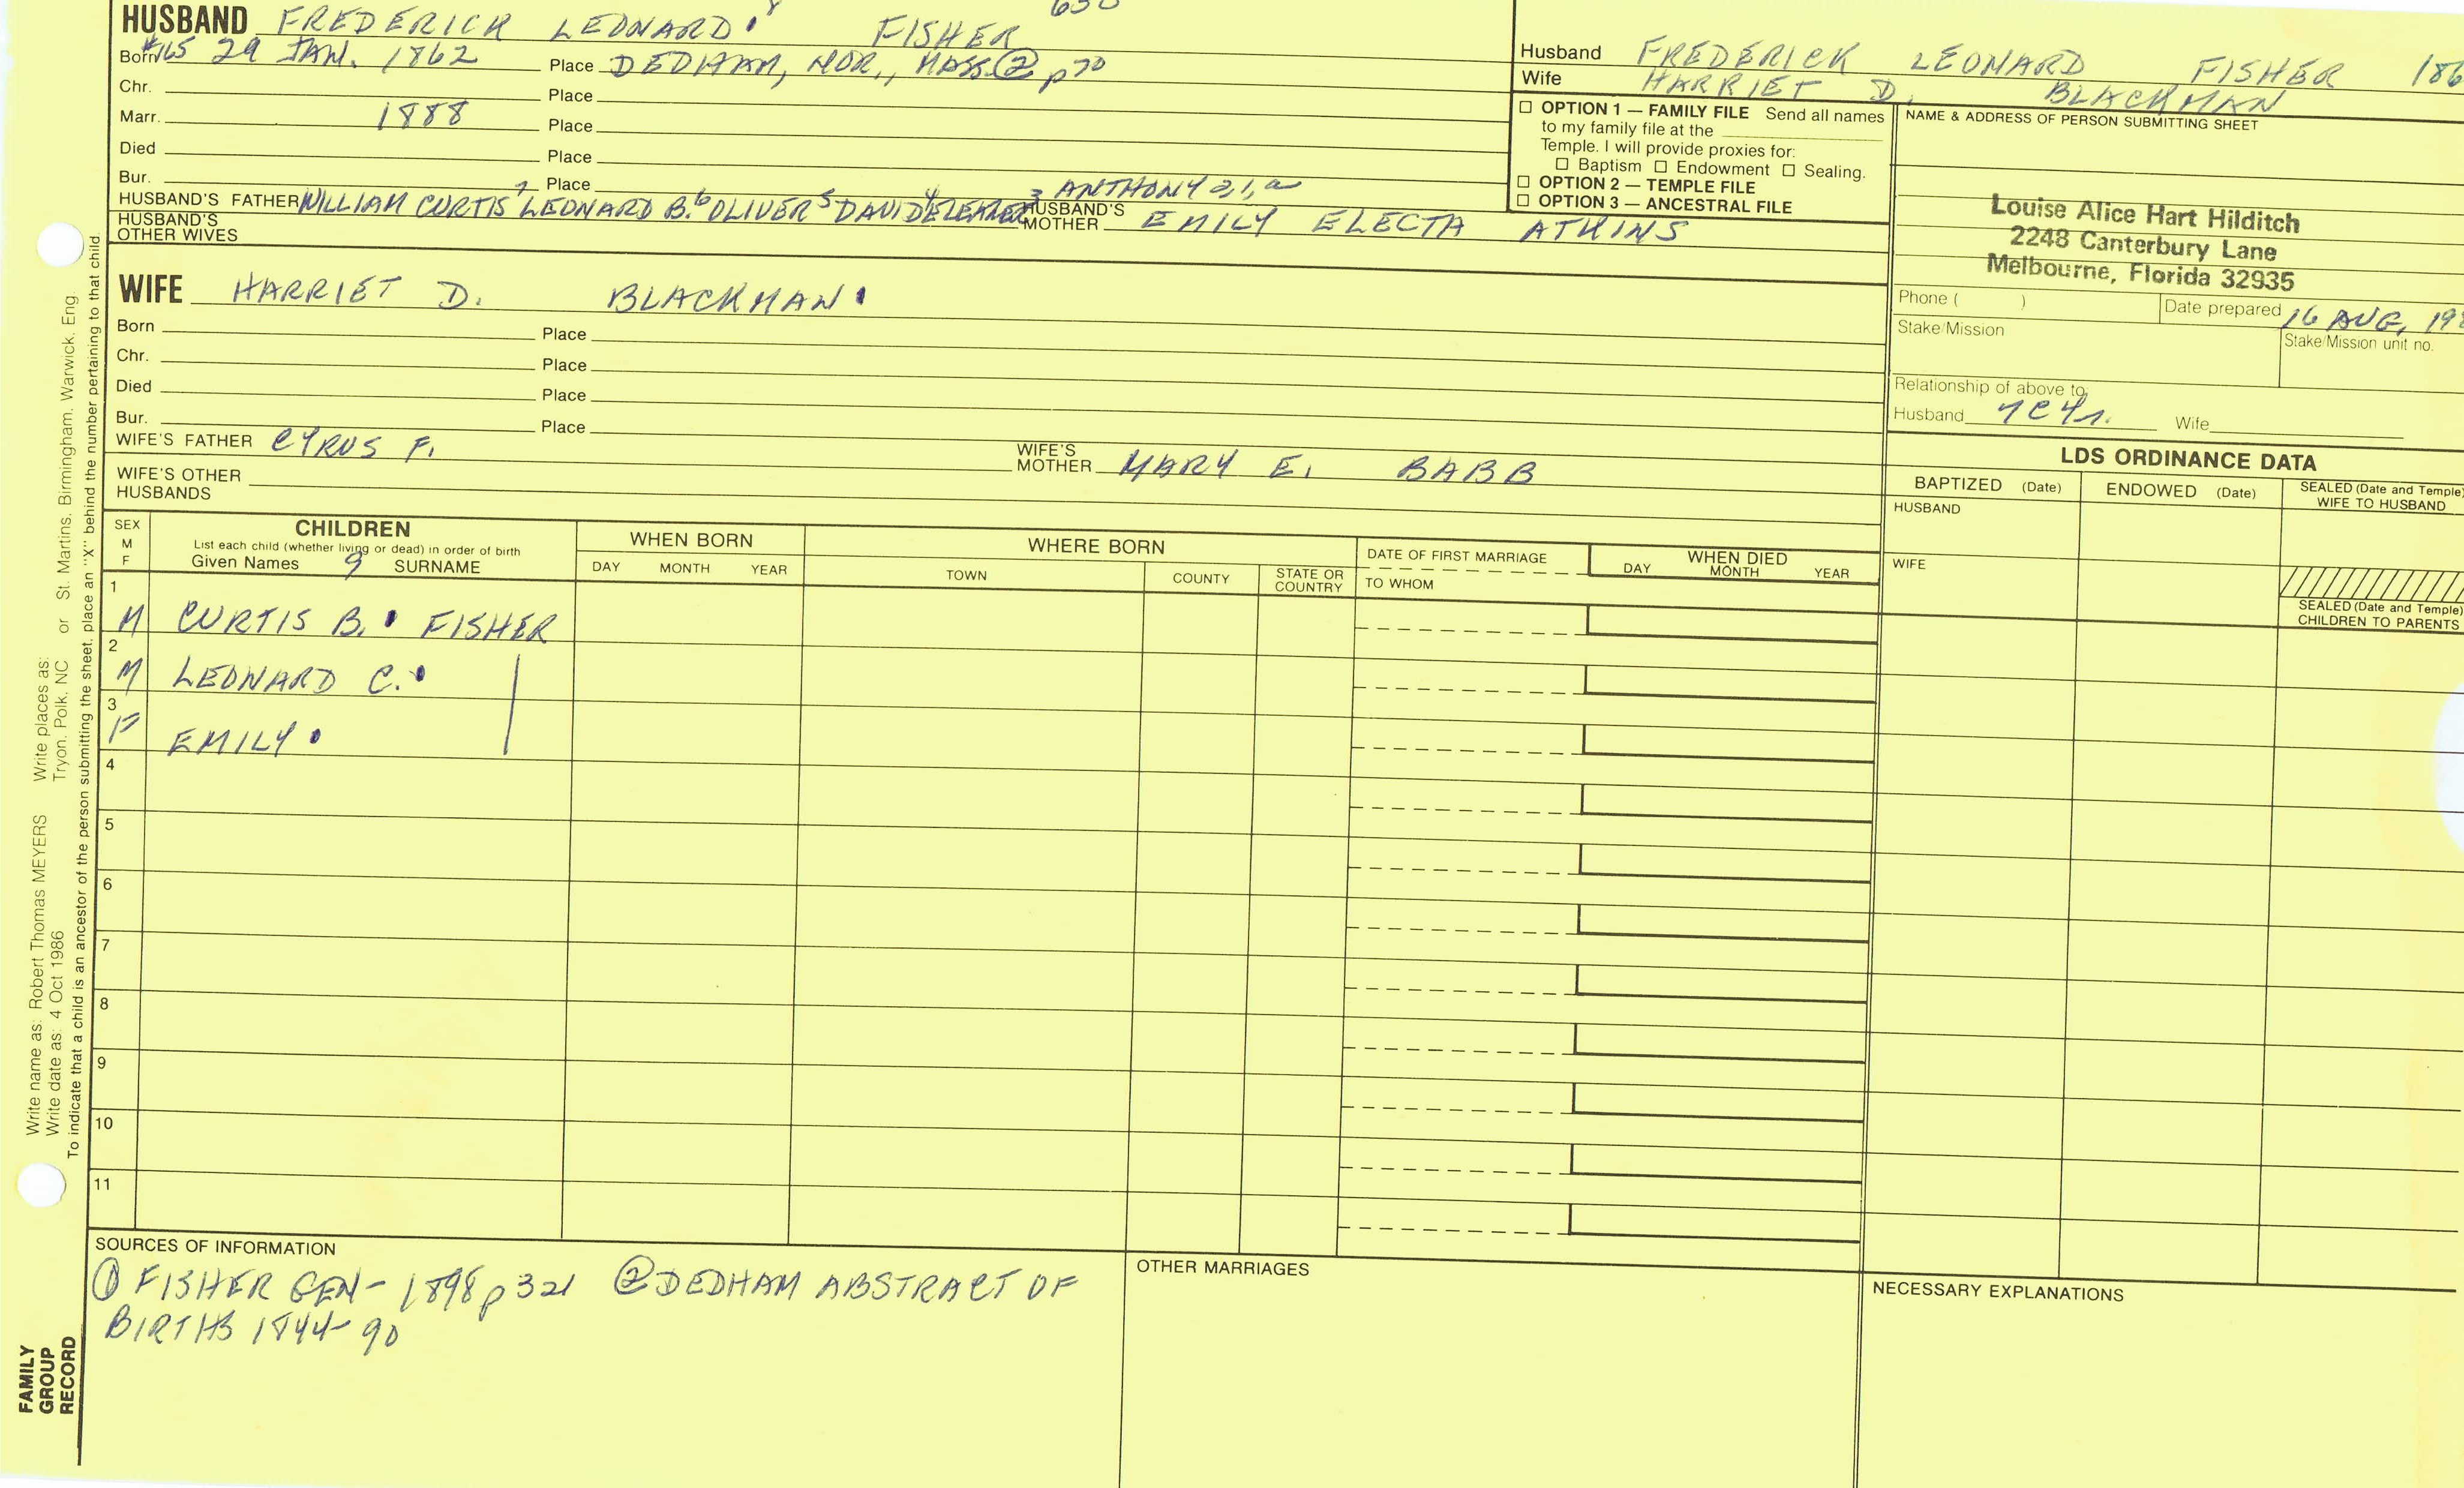 HUSBAND FREDERICK LEONARD 8 FISHER
Born #65 29 JAN. 1862 Place DEDHAM, NOR., MASS. ② p 70
Chr. Place
Marr. 1888 Place
Died Place
Bur. Place
HUSBAND'S FATHER WILLIAM CURTIS 7 LEONARD B. 6 OLIVER 5 DAVID 4 ELEAZER 3 ANTHONY 2,1,a HUSBAND'S MOTHER EMILY ELECTA ATKINS
HUSBAND'S OTHER WIVES
WIFE HARRIET D. BLACKMAN
Born Place
Chr. Place
Died Place
Bur. Place
WIFE'S FATHER CYRUS F. WIFE'S MOTHER MARY E. BABB
WIFE'S OTHER HUSBANDS
Husband FREDERICK LEONARD FISHER 186
Wife HARRIET D. BLACKMAN
☐ OPTION 1 — FAMILY FILE Send all names
to my family file at the
Temple. I will provide proxies for:
☐ Baptism ☐ Endowment ☐ Sealing.
☐ OPTION 2 — TEMPLE FILE
☐ OPTION 3 — ANCESTRAL FILE
NAME & ADDRESS OF PERSON SUBMITTING SHEET
Louise Alice Hart Hilditch
2248 Canterbury Lane
Melbourne, Florida 32935
Phone ( ) Date prepared 16 AUG, 19
Stake/Mission Stake/Mission unit no.
Relationship of above to:
Husband 7C4r. Wife
LDS ORDINANCE DATA
BAPTIZED (Date) ENDOWED (Date) SEALED (Date and Temple) WIFE TO HUSBAND
HUSBAND
WIFE
SEALED (Date and Temple)
CHILDREN TO PARENTS
SEX M F
CHILDREN
List each child (whether living or dead) in order of birth
Given Names 9 SURNAME
WHEN BORN
DAY MONTH YEAR
WHERE BORN
TOWN COUNTY STATE OR COUNTRY
DATE OF FIRST MARRIAGE
TO WHOM
WHEN DIED
DAY MONTH YEAR
1 M CURTIS B. FISHER
2 M LEONARD C.
3 F EMILY
4
5
6
7
8
9
10
11
SOURCES OF INFORMATION
① FISHER GEN- 1898 p 321 ② DEDHAM ABSTRACT OF
BIRTHS 1844-90
OTHER MARRIAGES
NECESSARY EXPLANATIONS
Write name as: Robert Thomas MEYERS Write places as:
Write date as: 4 Oct 1986 Tryon, Polk, NC or St. Martins, Birmingham, Warwick, Eng.
To indicate that a child is an ancestor of the person submitting the sheet, place an "X" behind the number pertaining to that child.
FAMILY
GROUP
RECORD